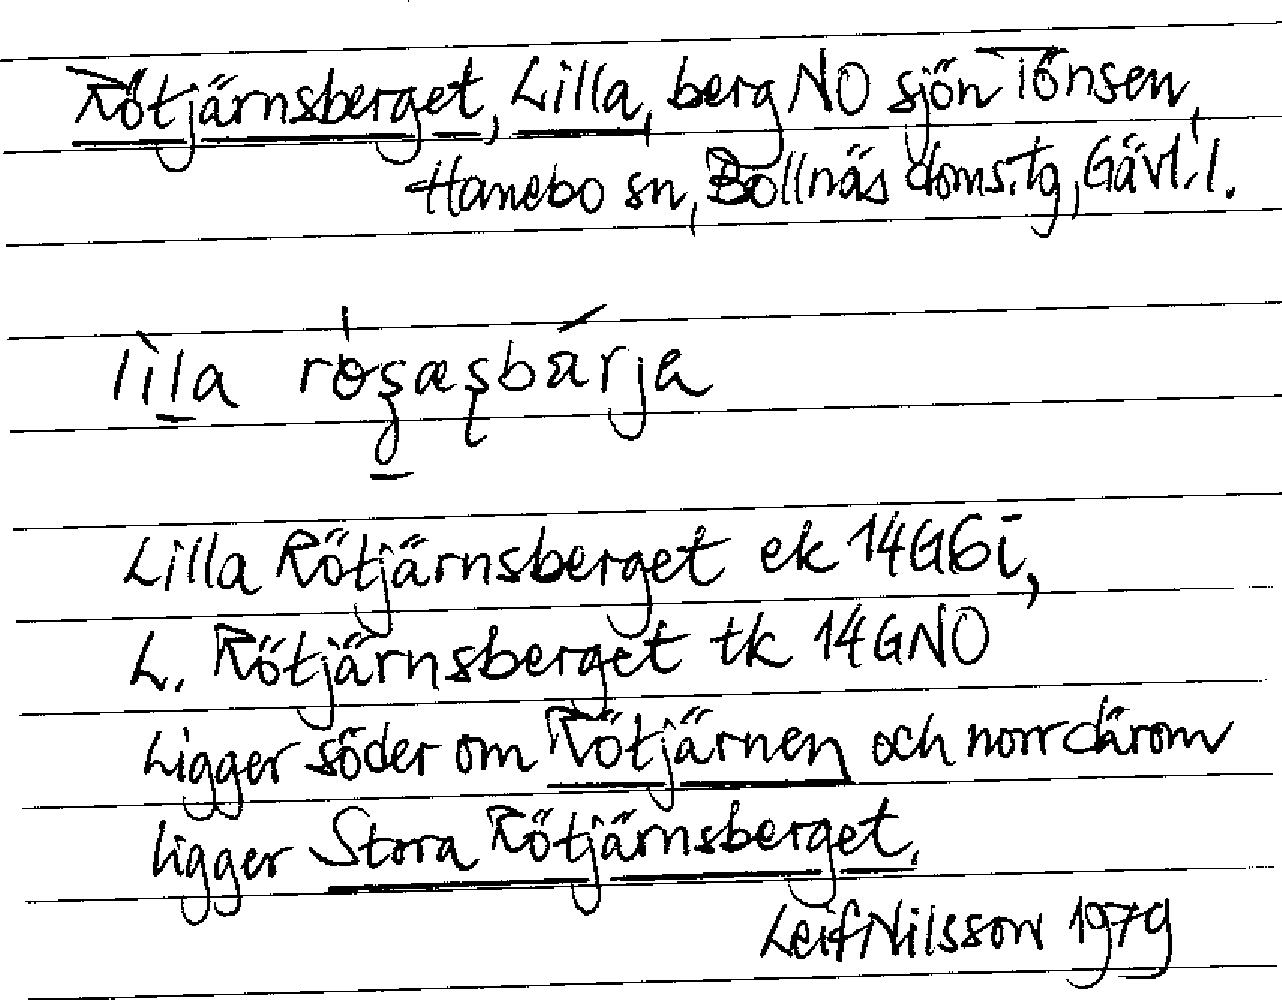 Rötjärnsberget, Lilla, berg NO sjön Tönsen,
Hanebo sn, Bollnäs doms.tg, Gävl. l.
lìla
Lilla Rötjärnsberget ek 14G6i,
L. Rötjärnsberget tk 14GNO
Ligger söder om Rötjärnen och norr därom
ligger Stora Rötjärnsberget.
Leif Nilsson 1979